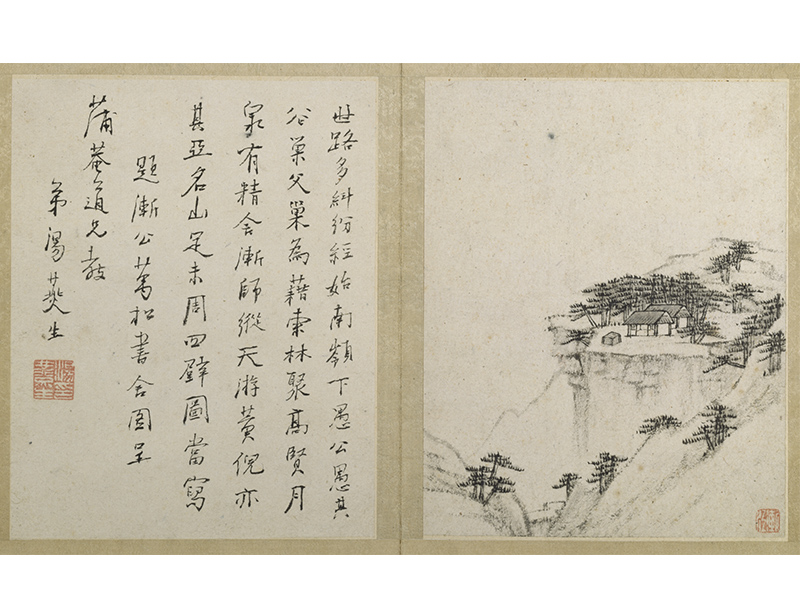 世路多糾紛經始南嶺下愚公愚其
公巢父巢為藉東林聚高賢月
泉有精舍漸師縱天游黃倪亦
其亞名山足未周四壁圖當寫
題漸公萬松書舍圖呈
蒲菴道兄教
弟湯燕生
湯燕生